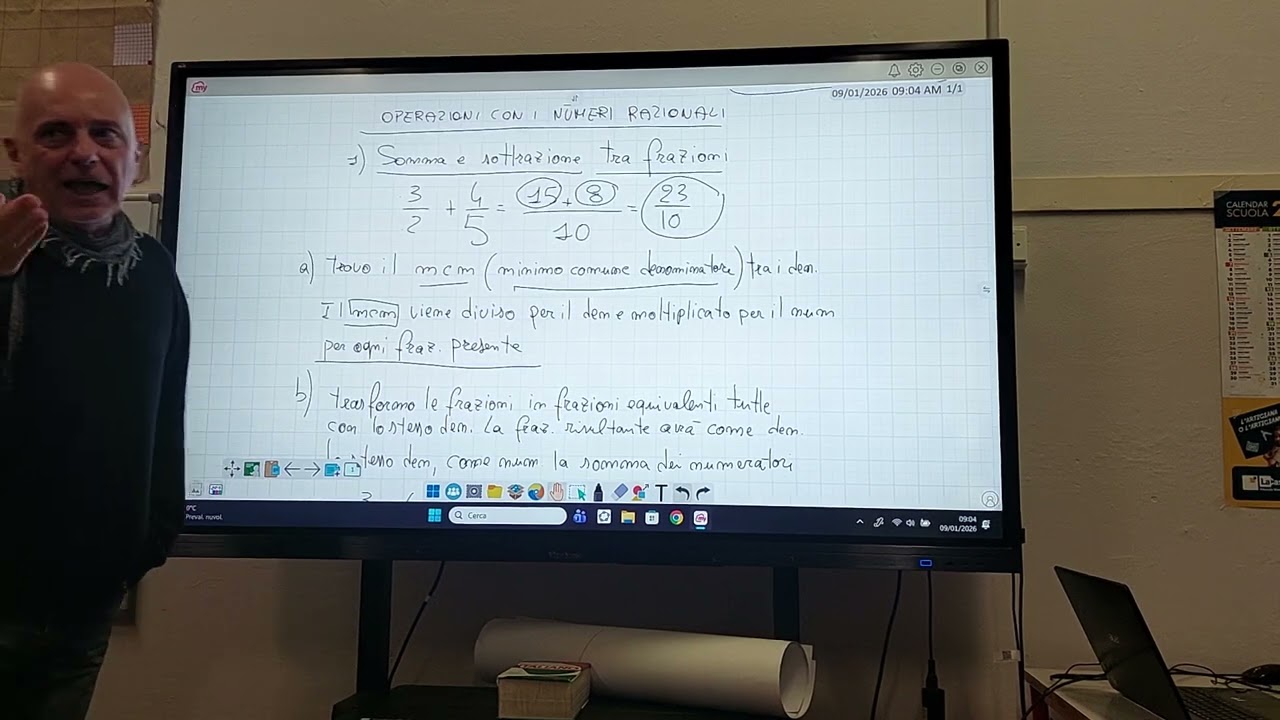 my
09/01/2026 09:04 AM 1/1
OPERAZIONI CON I NUMERI RAZIONALI
1) Somma e sottrazione tra frazioni
3/2 + 4/5 = 15+8/10 = 23/10
a) trovo il mcm (minimo comune denominatore) tra i den.
Il mcm viene diviso per il den e moltiplicato per il num
per ogni fraz. presente
b) trasformo le frazioni in frazioni equivalenti tutte
con lo stesso den. La fraz. risultante avrà come den.
lo stesso den, come num la somma dei numeratori
0°C
Preval. nuvol.
Cerca
09:04
09/01/2026
CALENDAR
SCUOLA 2
L'ARTIGIANA
O L'ARTIGIANO
ITALIANO